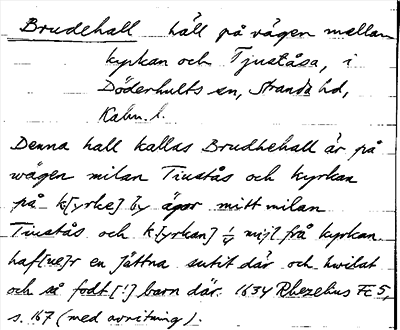 Brudehall häll på vägen mellan
kyrkan och Tjuståsa, i
Döderhults sn, Stranda hd,
Kalm. l.
Denna hall kallas Brudhehall är på
wägen milan Tiustås och kyrkan
på k[yrke] by ägor mitt milan
Tiustås och k[yrkan] ¼ mijl frå kyrkan
haf[ue]r en jättna sutit där och hwilat
och så fodt [!] barn där. 1634 Rhezelius Fc 5,
s. 167 (med avritning).